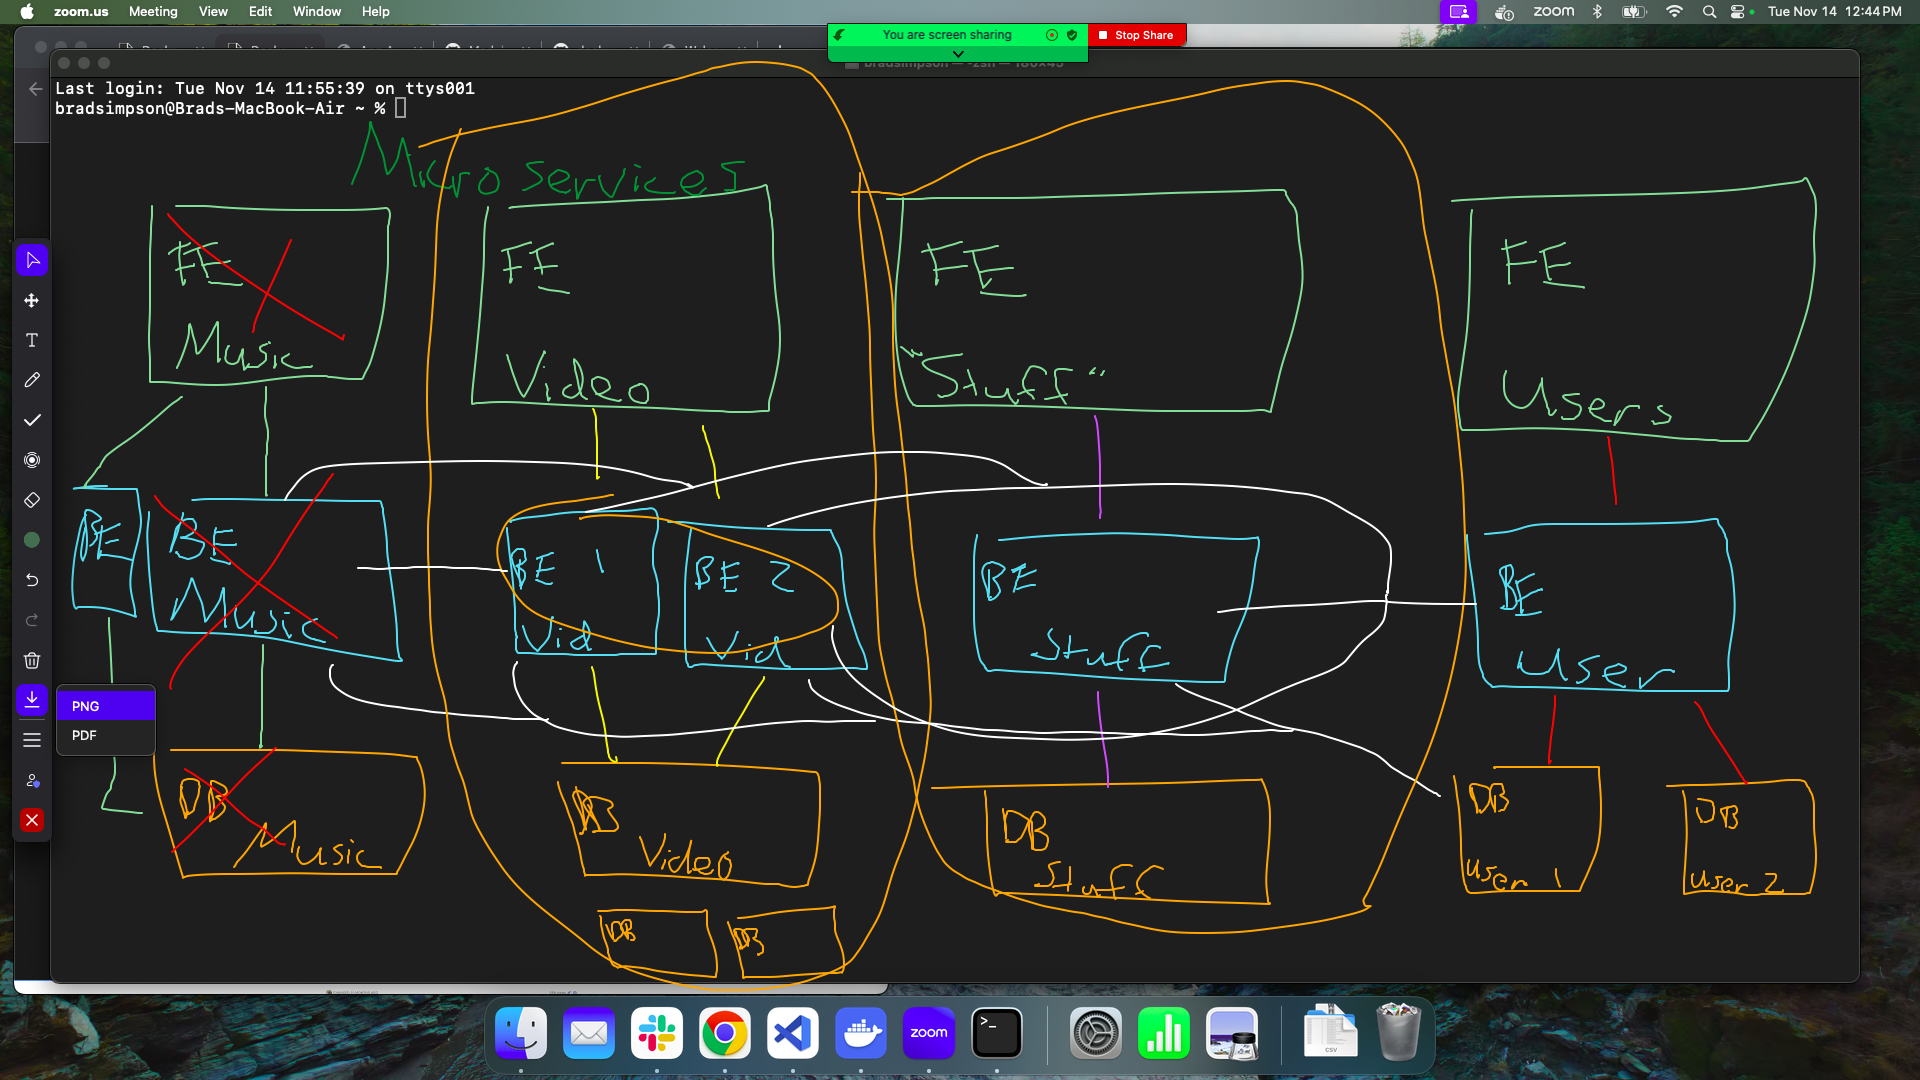 zoom.us Meeting View Edit Window Help
zoom Tue Nov 14 12:44 PM
You are screen sharing
Stop Share
bradsimpson — -zsh — 180×45
Last login: Tue Nov 14 11:55:39 on ttys001
bradsimpson@Brads-MacBook-Air ~ %
Microservices
FE Music
FE Video
FE "Stuff"
FE Users
BE
BE Music
BE 1 Vid
BE 2 Vid
BE Stuff
BE User
PNG
PDF
DB Music
DB Video
DB Stuff
DB User 1
DB User 2
DB
DB
zoom
CSV